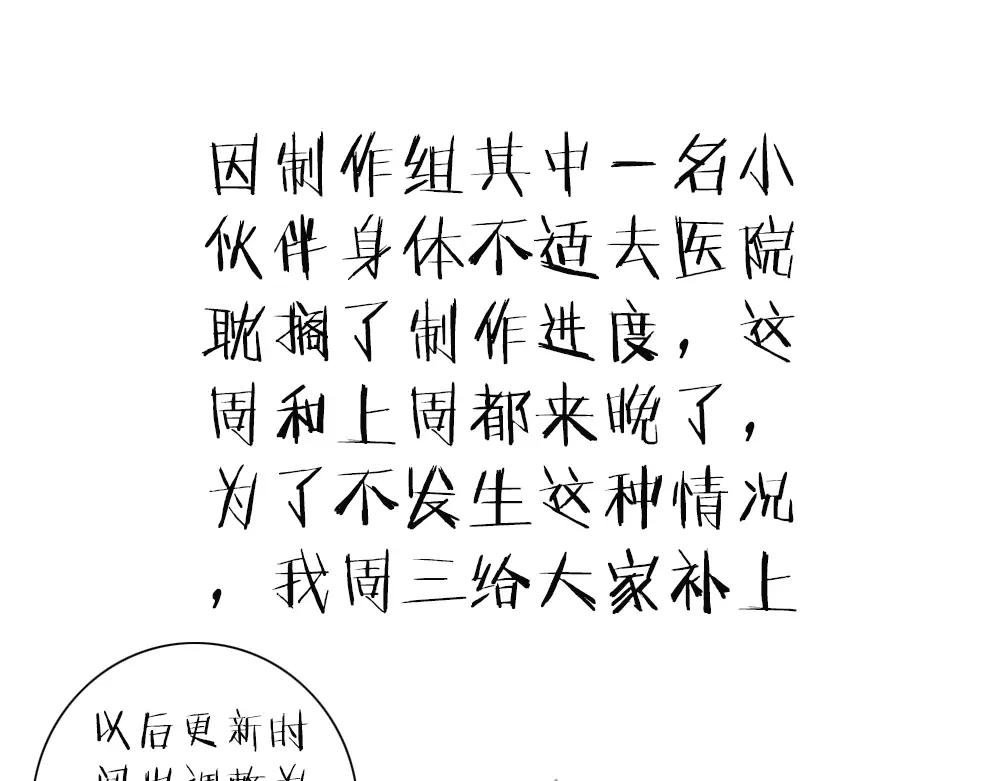 因制作组其中一名小
伙伴身体不适去医院
耽搁了制作进度，这
周和上周都来晚了，
为了不发生这种情况
，我周三给大家补上
以后更新时